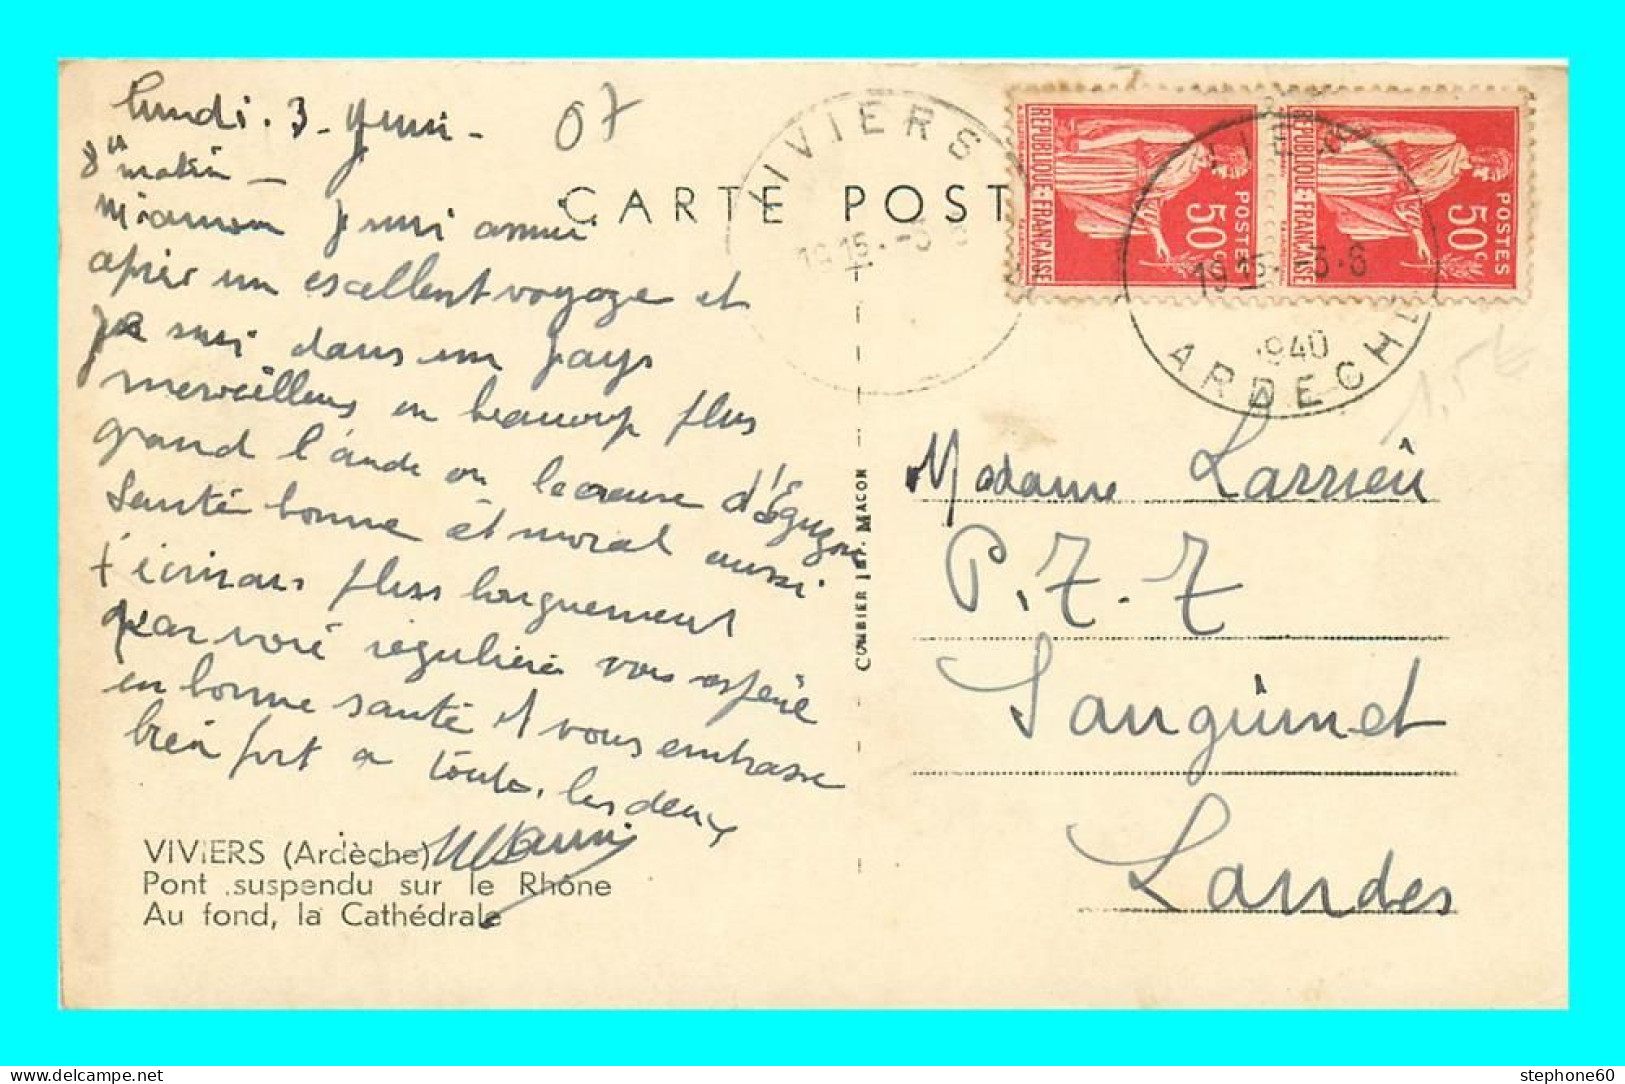 lundi. 3 - Juin -
07
8h matin -
M'amour Je suis assuri
après un excellent voyage et
je suis dans un pays
merveilleux en beaucoup plus
grand l'Aude ou la creuse d'Éguzon
Santé bonne et moral aussi
t'écrirais plus longuement
par voie régulière vous espère
en bonne santé et vous embrasse
bien fort a toutes les deux
VIVIERS (Ardèche)
Pont suspendu sur le Rhône
Au fond, la Cathédrale
CARTE POST
VIVIERS
19 15 -3
COMBIER IMP. MACON
REPUBLIQUE-FRANÇAISE
POSTES
50c
REPUBLIQUE-FRANÇAISE
POSTES
50c
19 15 -3-6
1940
ARDECHE
1,5€
Madame Larrieu
P.T.T
Sanguinet
Landes
stephone60